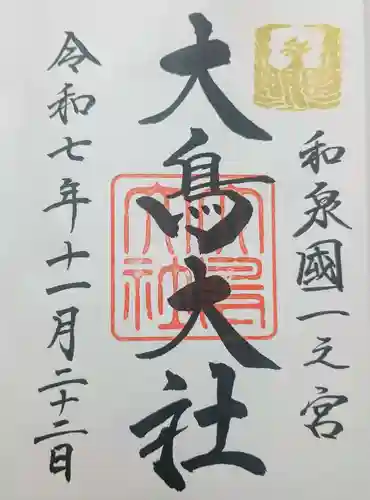 和泉國一之宮
大鳥大社
令和七年十一月二十二日
大鳥大社